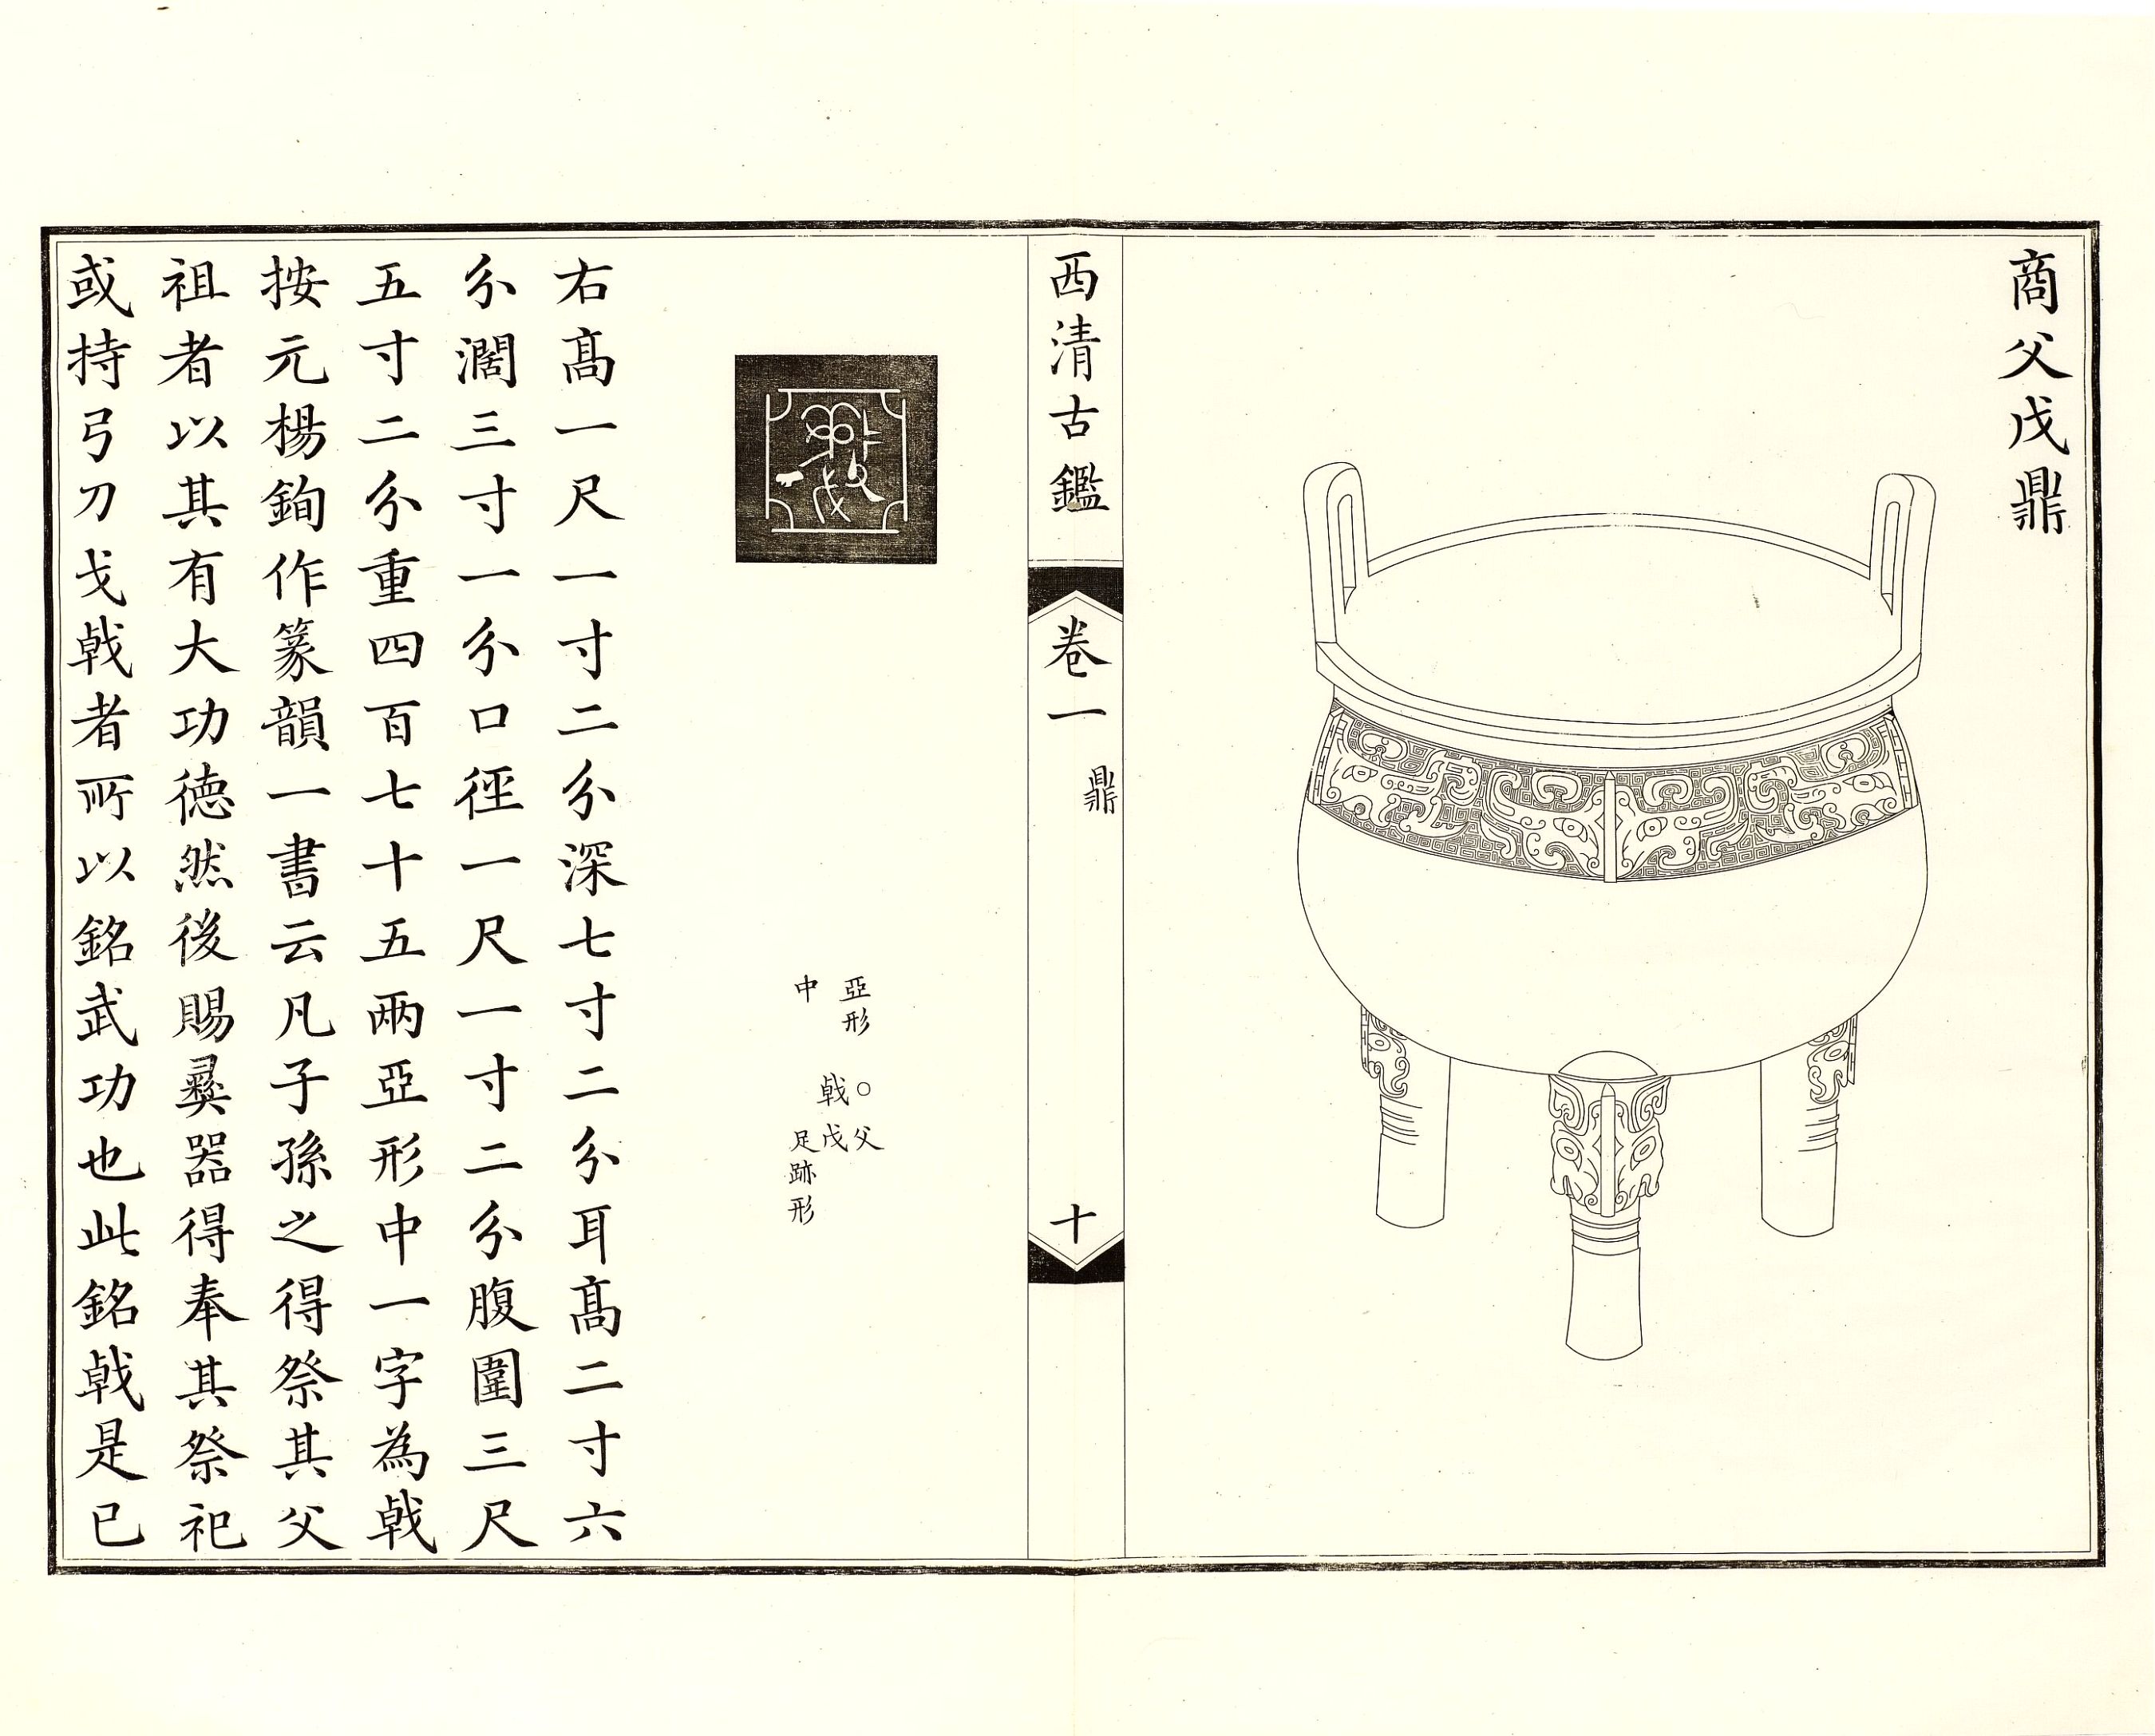 商父戊鼎
西清古鑑
卷一
鼎
十
亞形
中
○父
戟戊
足跡形
右髙一尺一寸二分深七寸二分耳髙二寸六
分濶三寸一分口徑一尺一寸二分腹圍三尺
五寸二分重四百七十五兩亞形中一字為戟
按元楊鉤作篆韻一書云凡子孫之得祭其父
祖者以其有大功德然後賜彞器得奉其祭祀
或持弓刀戈戟者所以銘武功也此銘戟是已